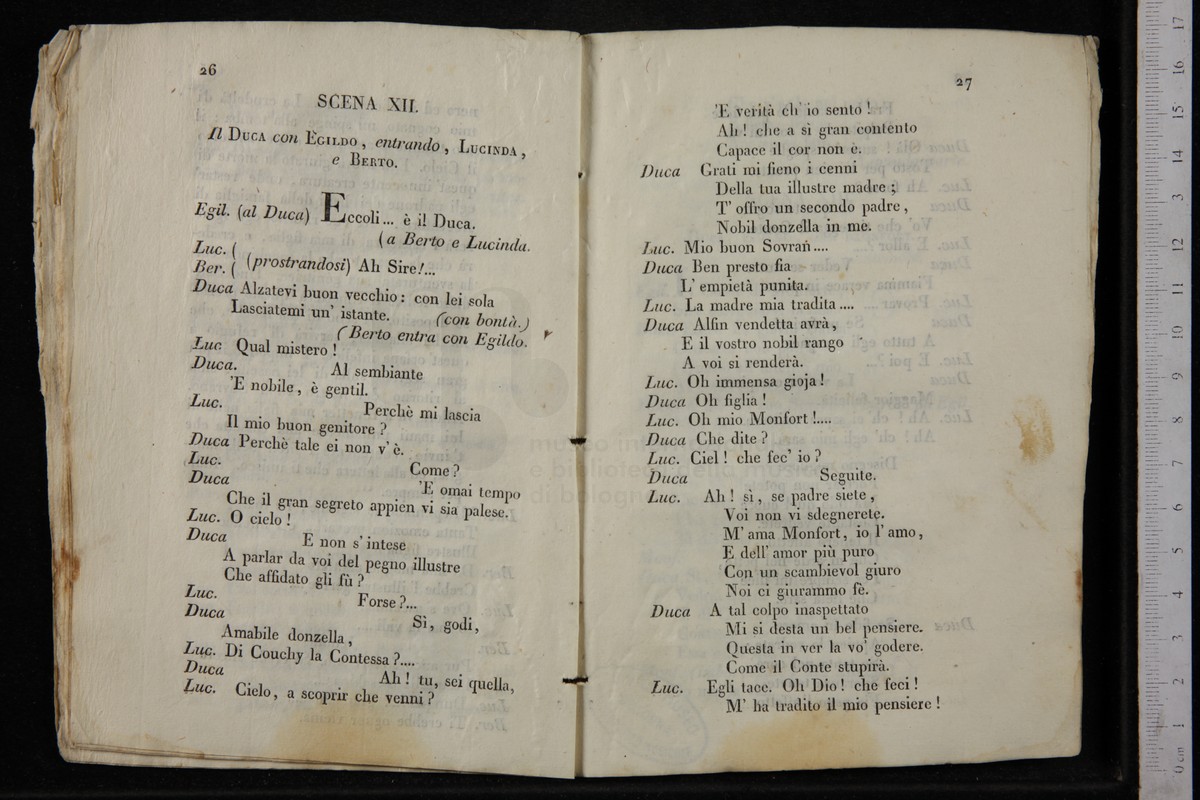 26
SCENA XII.
Il Duca con Egildo, entrando, Lucinda,
e Berto.
Egil. (al Duca) Eccoli... è il Duca.
(a Berto e Lucinda.
Luc. (
Ber. ( (prostrandosi) Ah Sire!...
Duca Alzatevi buon vecchio: con lei sola
Lasciatemi un' istante. (con bontà.)
(Berto entra con Egildo.
Luc Qual mistero!
Duca. Al sembiante
'E nobile, è gentil.
Luc. Perchè mi lascia
Il mio buon genitore?
Duca Perchè tale ei non v' è.
Luc. Come?
Duca 'E omai tempo
Che il gran segreto appien vi sia palese.
Luc. O cielo!
Duca E non s' intese
A parlar da voi del pegno illustre
Che affidato gli fù?
Luc. Forse?...
Duca Sì, godi,
Amabile donzella,
Luc. Di Couchy la Contessa?....
Duca Ah! tu, sei quella,
Luc. Cielo, a scoprir che venni?
27
'E verità ch' io sento!
Ah! che a sì gran contento
Capace il cor non è.
Duca Grati mi fieno i cenni
Della tua illustre madre;
T' offro un secondo padre,
Nobil donzella in me.
Luc. Mio buon Sovran....
Duca Ben presto fia
L' empietà punita.
Luc. La madre mia tradita....
Duca Alfin vendetta avrà,
E il vostro nobil rango
A voi si renderà.
Luc. Oh immensa gioja!
Duca Oh figlia!
Luc. Oh mio Monfort!....
Duca Che dite?
Luc. Ciel! che fec' io?
Duca Seguite.
Luc. Ah! sì, se padre siete,
Voi non vi sdegnerete.
M' ama Monfort, io l' amo,
E dell' amor più puro
Con un scambievol giuro
Noi ci giurammo fè.
Duca A tal colpo inaspettato
Mi si desta un bel pensiere.
Questa in ver la vo' godere.
Come il Conte stupirà.
Luc. Egli tace. Oh Dio! che feci!
M' ha tradito il mio pensiere!